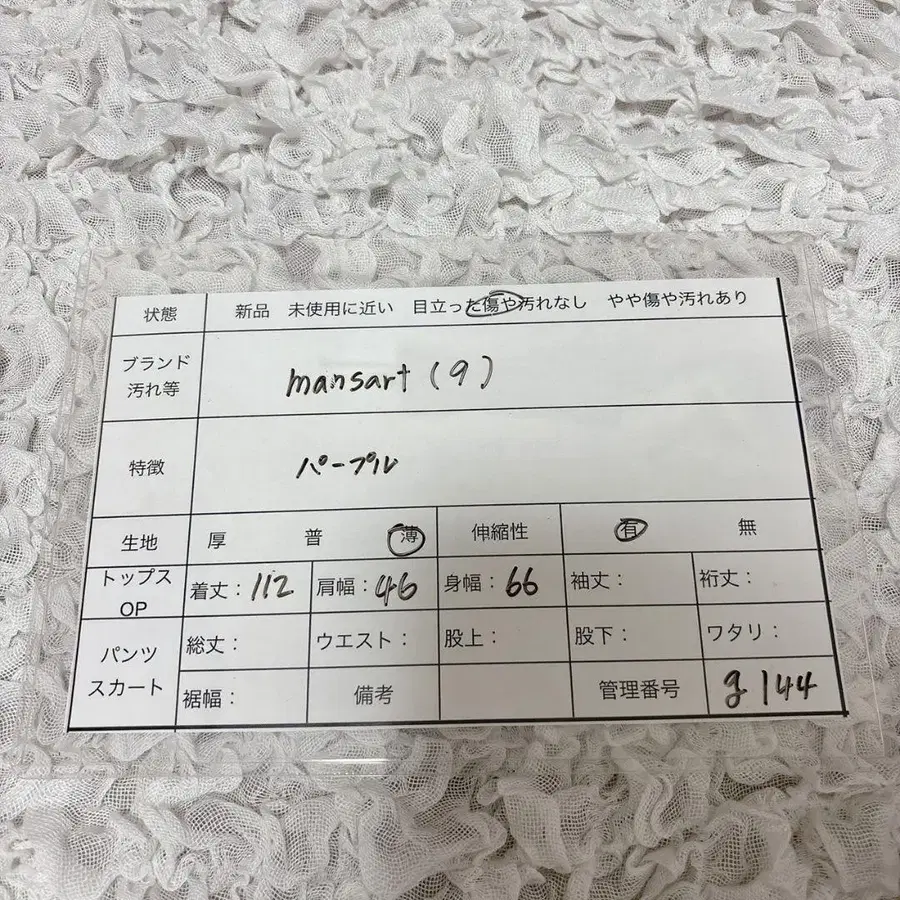 状態 新品 未使用に近い 目立った傷や汚れなし やや傷や汚れあり
ブランド
汚れ等
mansart (9)
特徴 パープル
生地 厚 普 薄 伸縮性 有 無
トップス
OP
着丈：112 肩幅：46 身幅：66 袖丈： 裄丈：
パンツ
スカート
総丈： ウエスト： 股上： 股下： ワタリ：
裾幅： 備考 管理番号 g144